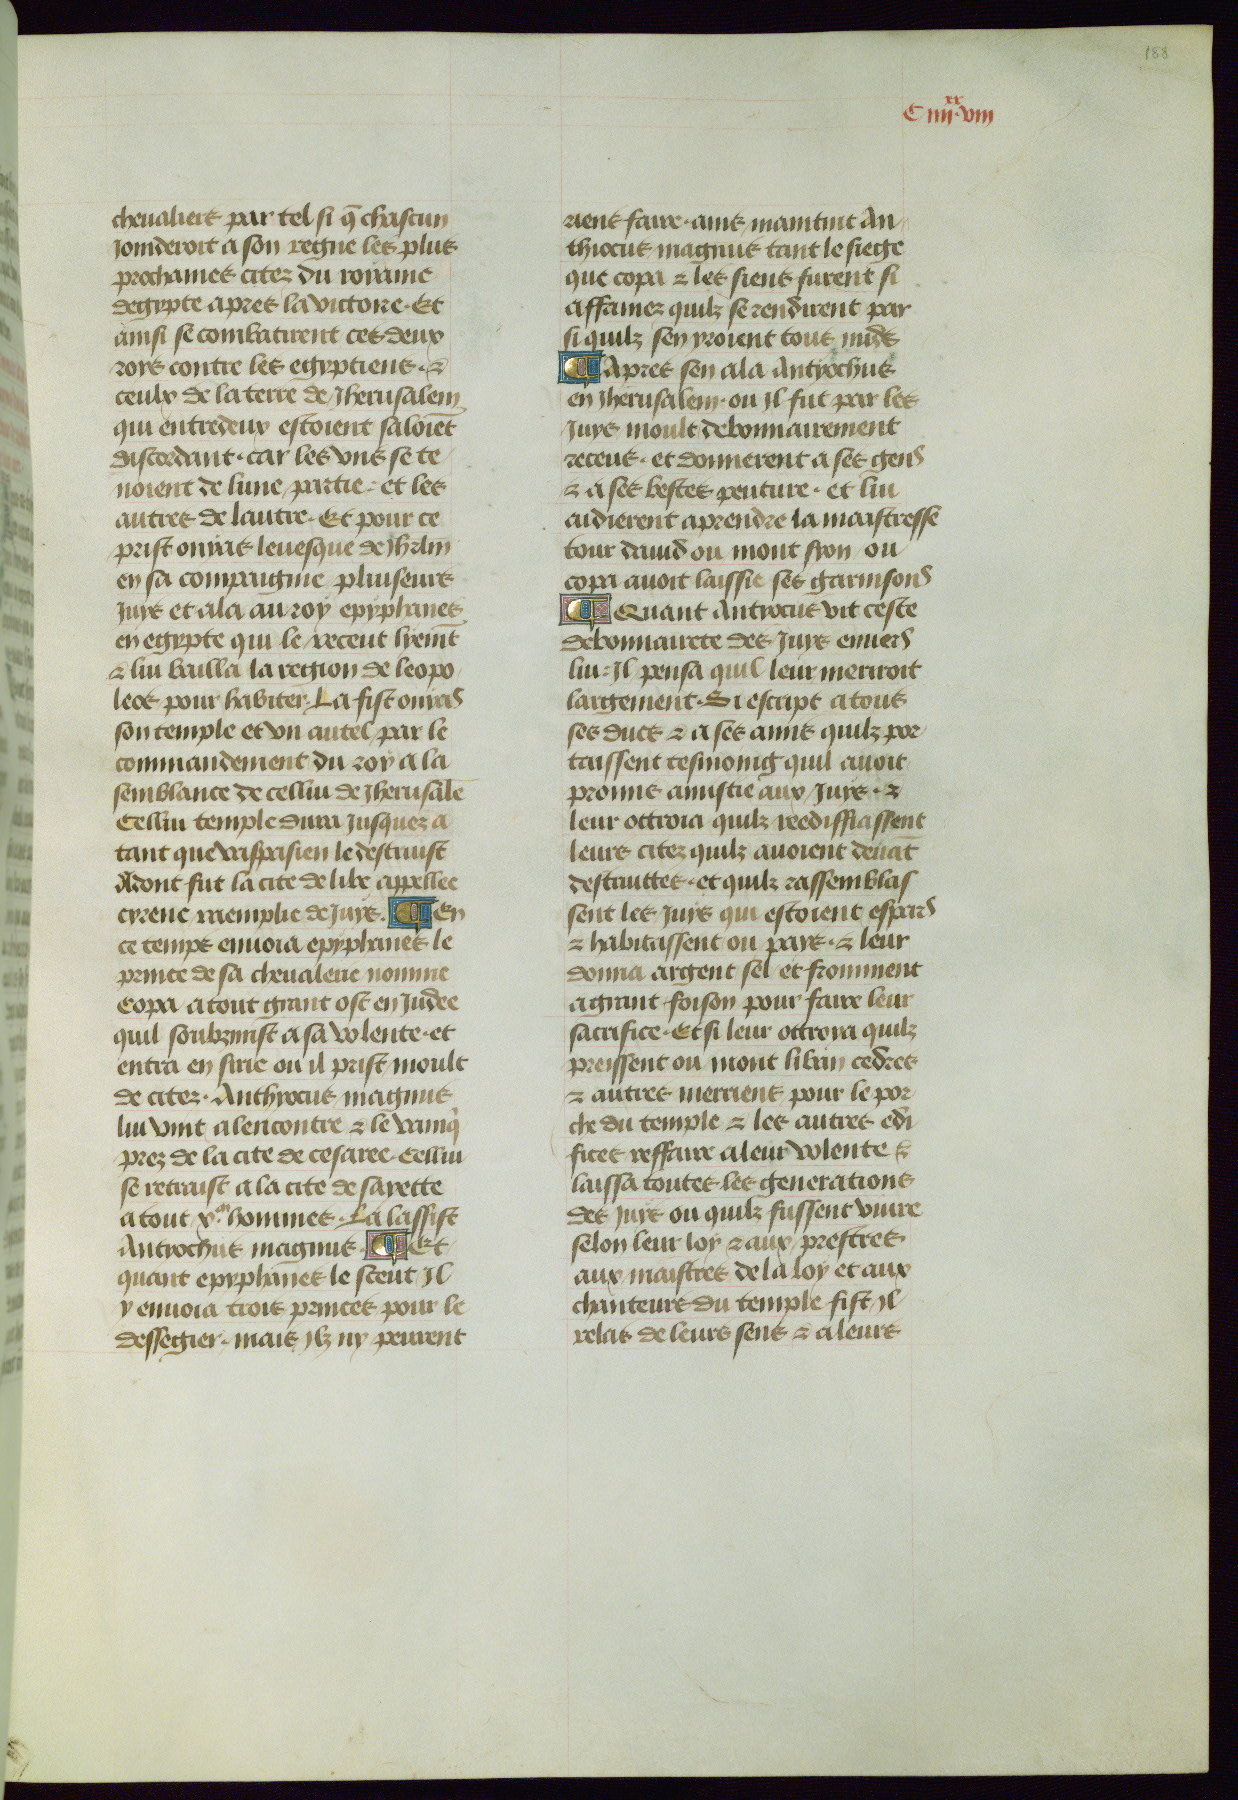 188
C iiii.xx viii
chevaliers par tel si q̄ chascun
joinderoit a son regne les plus
prochaines citez du roiaume
degypte apres la victoire. Et
ainsi se combatirent ces deux
roys contre les egyptiens. &
ceulx de la terre de Jherusalem
qui entredeux estoient saloiēt
discordant. car les vns se te
noient de lune partie. et les
autres de lautre. Et pour ce
prist onias leuesque de Jhrlm
en sa compaignie pluiseurs
Juys et ala au roy epyphanes
en egypte qui le receut lyemt
& lui bailla la region de leopo
leos pour habiter. La fist onias
son temple et vn autel par le
commandement du roy a la
semblance de cellui de Jherusale
Cellui temple dura jusquez a
tant que vaspasien le destruist
Adont fut la cite de libe appellee
cyrene raemplie de Juys. ¶ En
ce temps enuoia epyphanes le
prince de sa cheualerie nomme
Copa a tout grant ost en Judee
quil soubzmist a sa volente. et
entra en sirie ou il prist moult
de citez. Anthyocus magnus
lui vint alencontre & le vainq̄
prez de la cite de cesaree. Cellui
se retraist a la cite de sayette
a tout x.m hommes. La lassist
Antyochus magnus. ¶ Et
quant epyphanes le sceut Il
y enuoia trois princes pour le
dessegier. mais ilz ny peurent
riens faire. ains maintint An
thiocus magnus tant le siege
que copa & les siens furent si
affamez quilz se rendirent par
si quilz sen yroient tous nuds
¶ Apres sen ala Antyochus
en Jherusalem. ou Il fut par les
Juys moult debonnairement
receus. et donnerent a ses gens
& a ses bestes peuture. et lui
aidierent aprendre la maistresse
tour dauid ou mont syon ou
copa auoit laissie ses garnisons
¶ Quant Antyocus vit ceste
debonnairete des Juys enuers
lui. Il pensa quil leur meriroit
largement. Si escript a tous
ses ducs & a ses amis quilz por
taissent tesmoing quil auoit
promis amistie aux Juys. &
leur ottroia quilz reediffiassent
leurs citez quilz auoient deuāt
destruittes. et quilz rassemblas
sent les Juys qui estoient espars
& habitassent ou pays. & leur
donna argent sel et fromment
a grant foison pour faire leur
sacrifice. Et si leur ottroia quilz
preissent ou mont liban cedres
& autres merriens pour le por
che du temple & les autres edi
fices reffaire a leur volente &
laissa toutes les generations
des Juys ou quilz fussent viure
selon leur loy & aux prestres
aux maistres de la loy et aux
chanteurs du temple fist Il
relais de leurs sens & a leurs